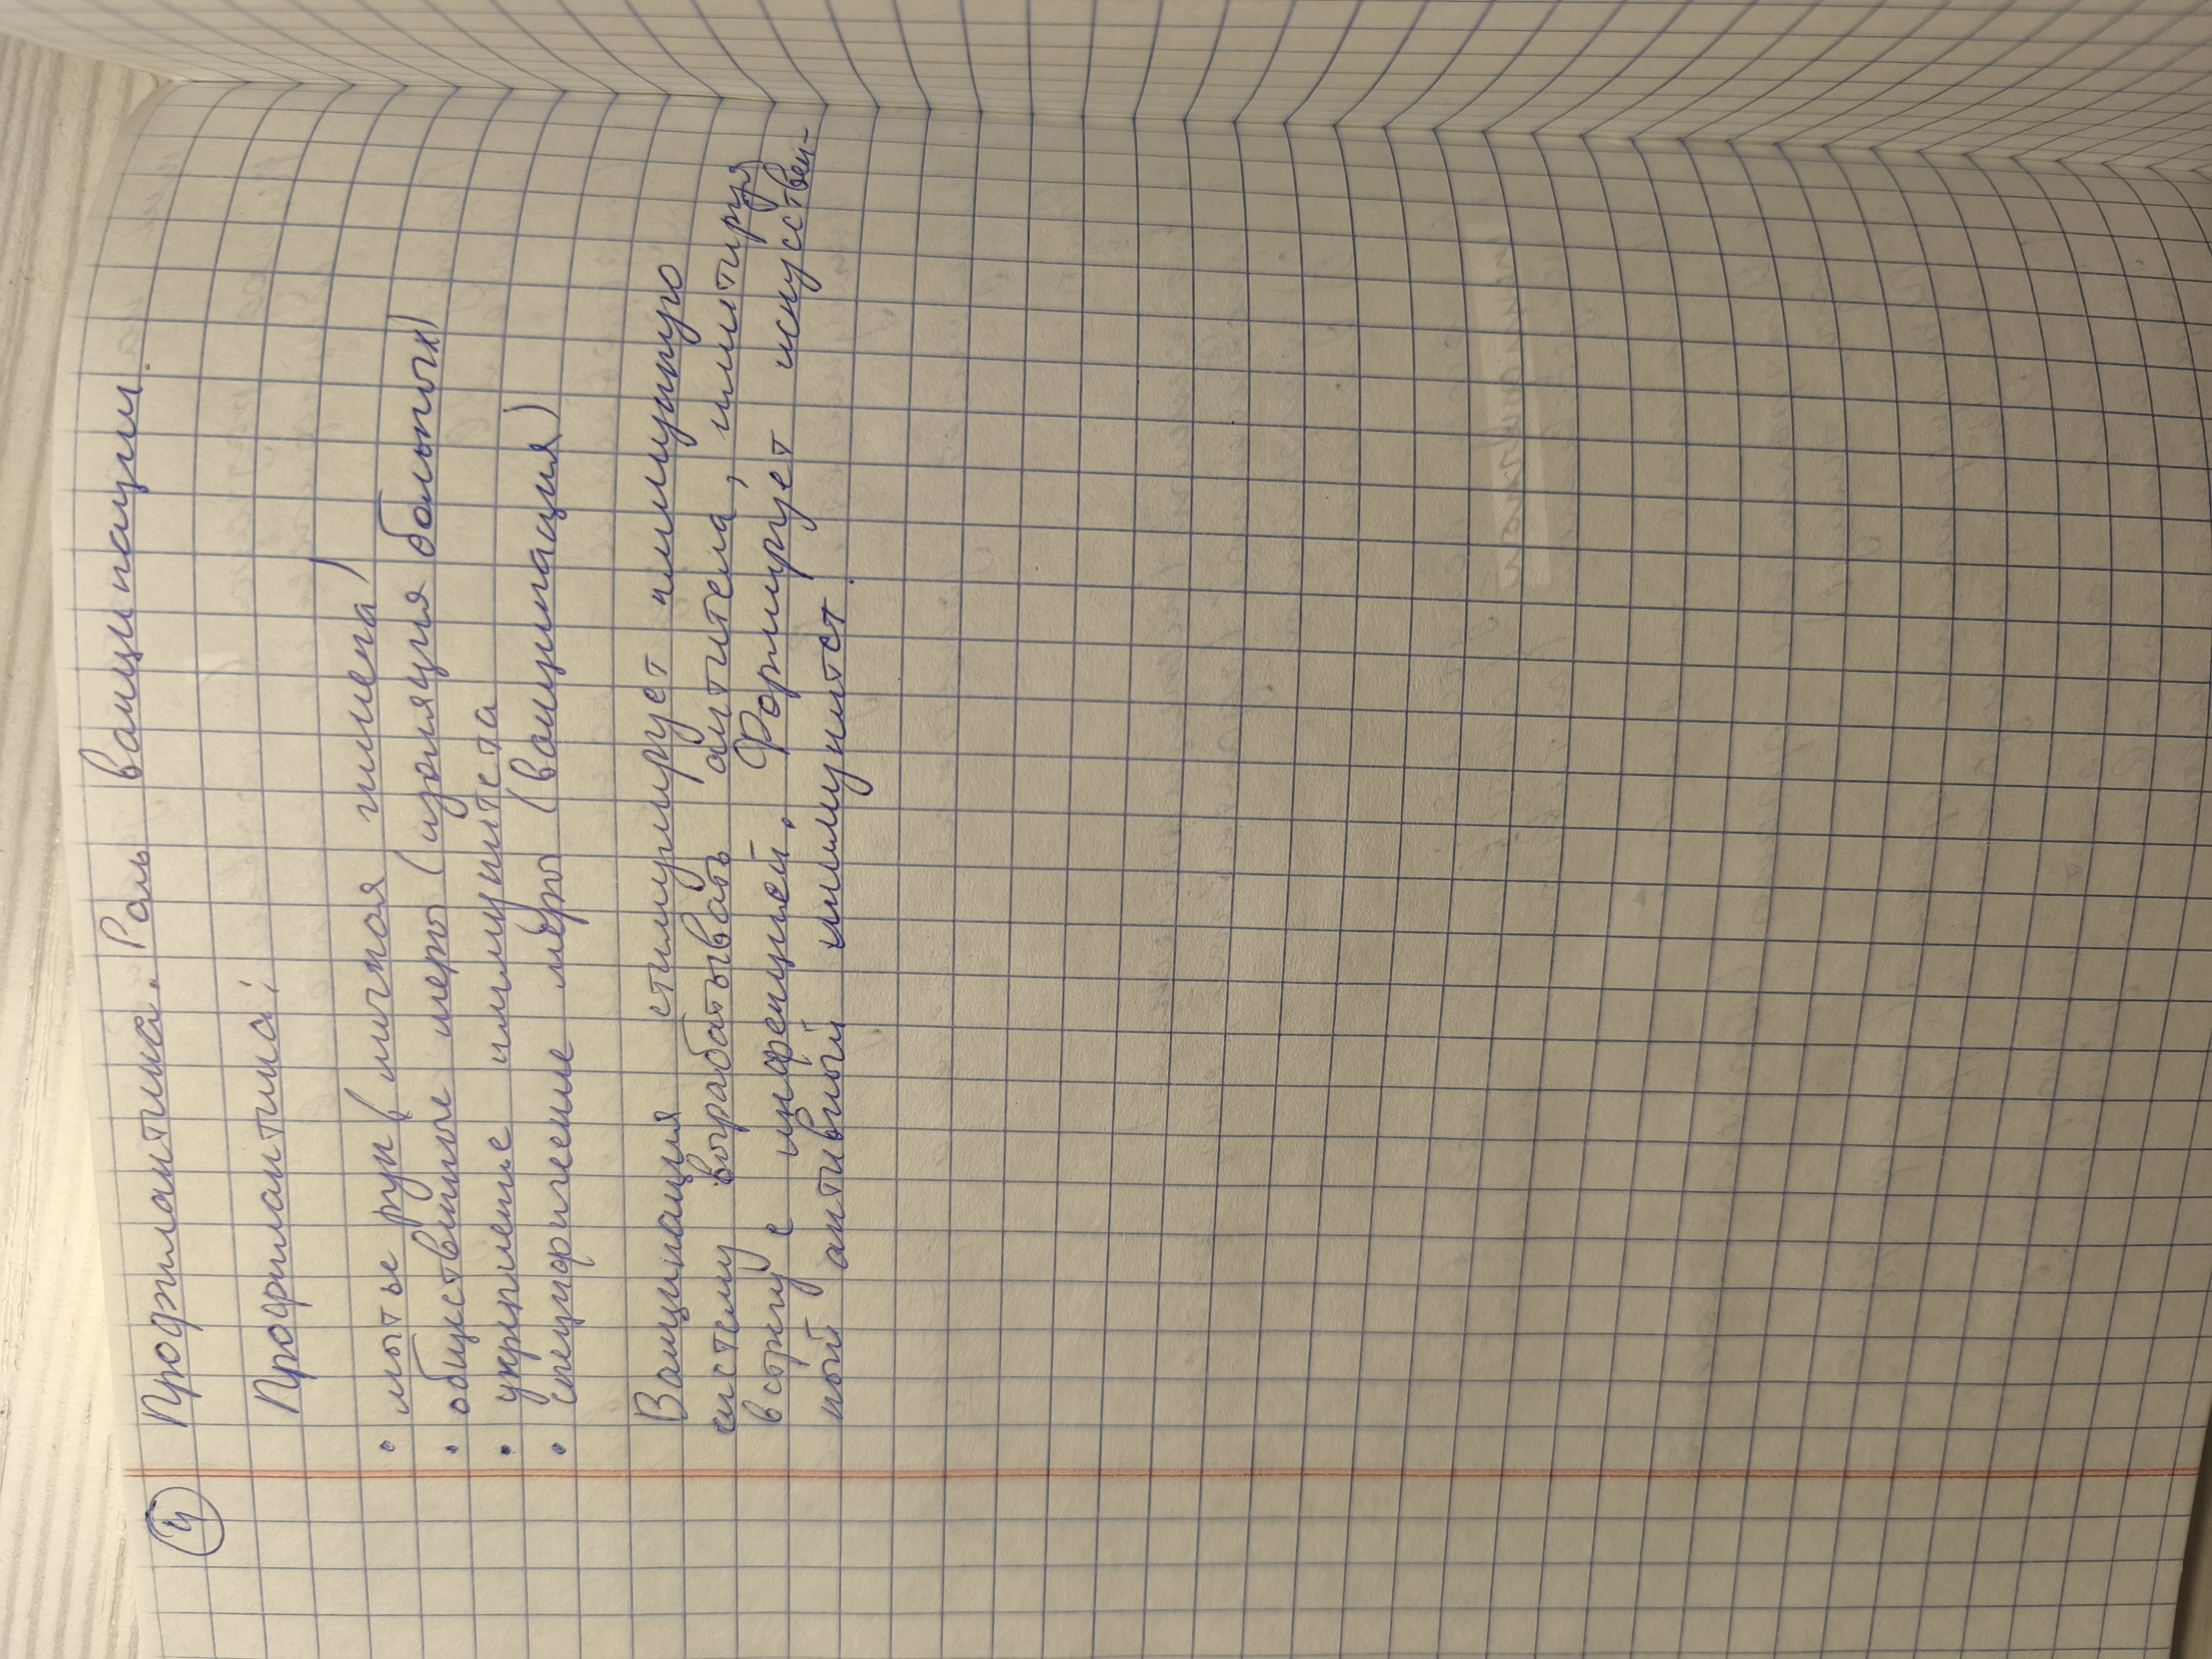 4 Профилактика. Роль вакцинации.
Профилактика:
• мытье рук (личная гигиена)
• общественные меры (изоляция больных)
• укрепление иммунитета
• специфические меры (вакцинация)
Вакцинация стимулирует иммунную
систему вырабатывать антитела, имитируя
встречу с инфекцией. Формирует искусствен-
ный активный иммунитет.